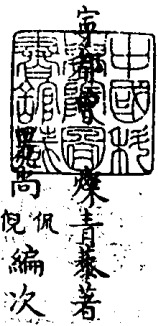 寧都曾燦青藜著
男尚侃倪編次
中國科
學院圖
書館藏